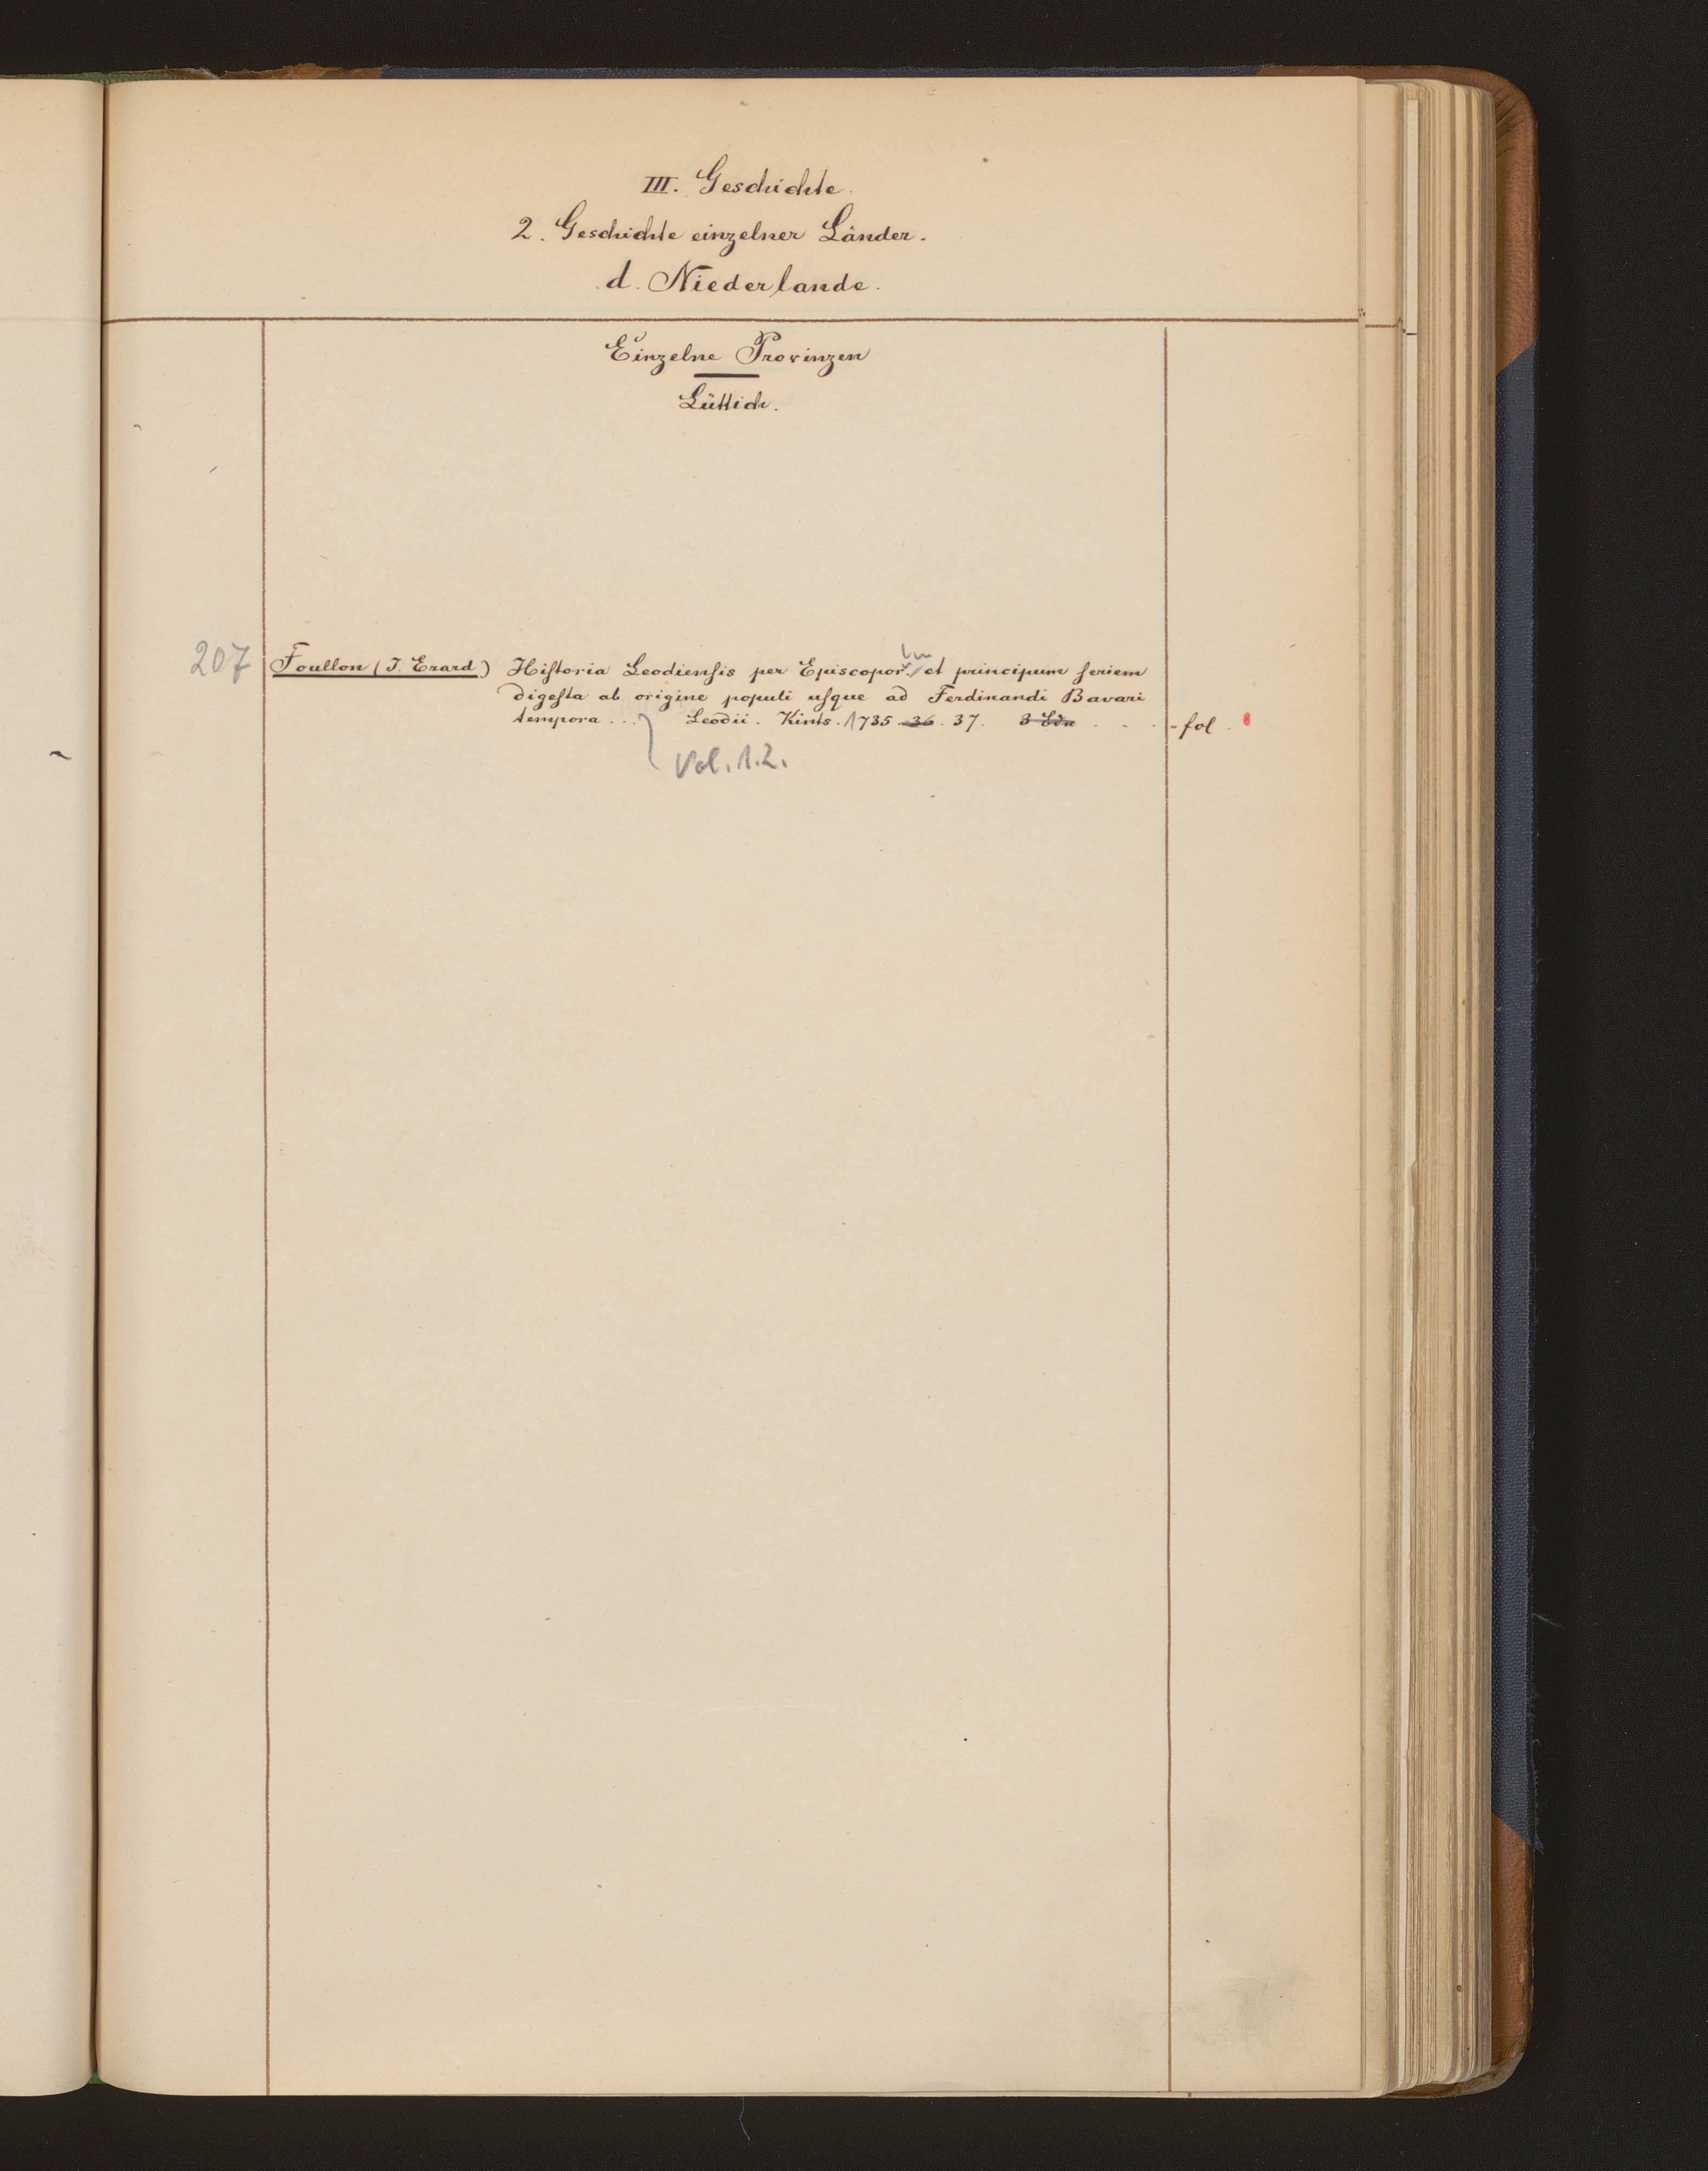 III. Geschichte.
2. Geschichte einzelner Länder.
d. Niederlande.
Einzelne Provinzen
Lüttich.
207 Foullon (J. Erard) Hiſtoria Leodienſis per Episcoporum et principum ſeriem
digeſta ab origine populi uſque ad Ferdinandi Bavari
tempora ... Leodii. Kints. 1735. 36. 37. 3 Bdn - - - fol.
Vol. 1.2.